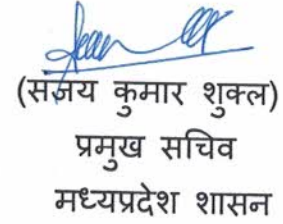 (संजय कुमार शुक्ल)
प्रमुख सचिव
मध्यप्रदेश शासन